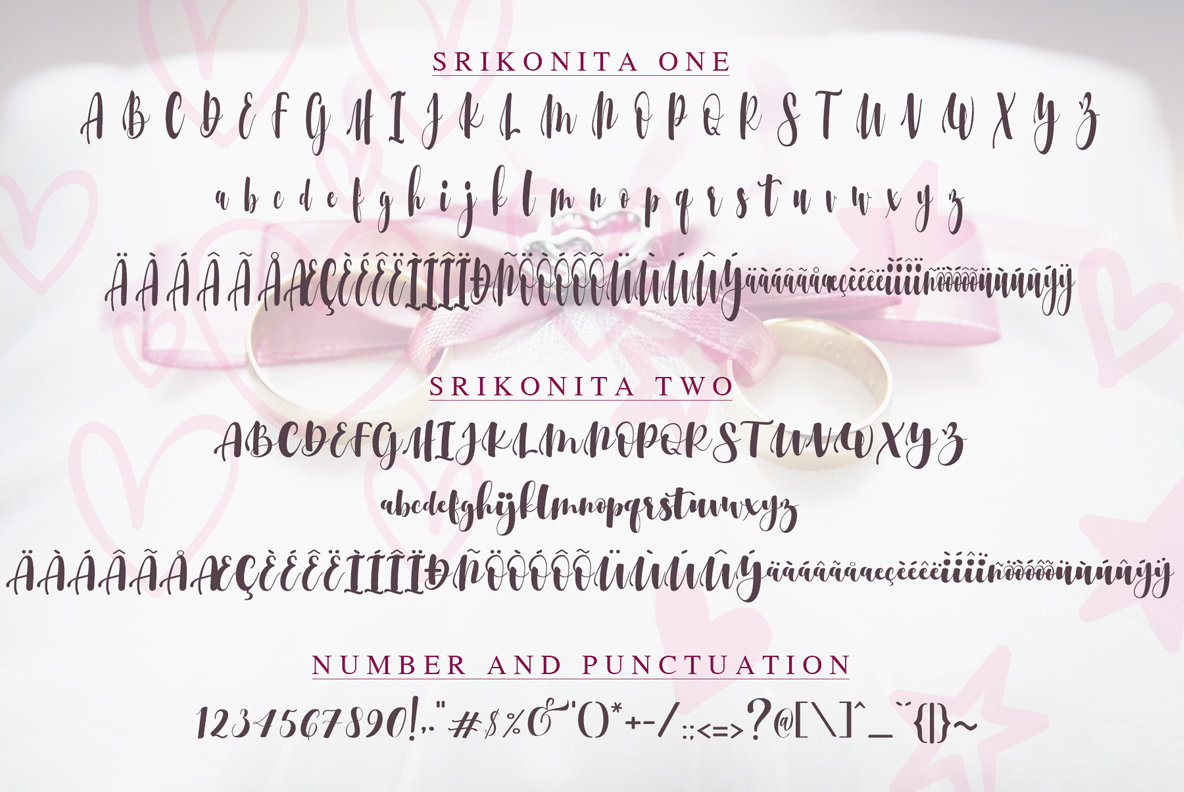 SRIKONITA ONE
A B C D E F G H I J K L M N O P Q R S T U V W X Y Z
a b c d e f g h i j k l m n o p q r s t u v w x y z
Ä À Á Â Ã Å Æ Ç È É Ê Ë Ì Í Î Ï Ð Ñ Ö Ò Ó Ô Õ Ü Ù Ú Û Ý ä à á â ã å æ ç è é ê ë ì í î ï ñ ö ò ó ô õ ü ù ú û ý ÿ
SRIKONITA TWO
ABCDEFGHIJKLMNOPQRSTUVWXYZ
abcdefghijklmnopqrstuvwxyz
ÄÀÁÂÃÅÆÇÈÉÊËÌÍÎÏÐÑÖÒÓÔÕÜÙÚÛÝäàáâãåæçèéêëìíîïñöòóôõüùúûýÿ
NUMBER AND PUNCTUATION
1234567890!,."#$%&'()*+-/:;<=>?@[\]^_¨{|}~